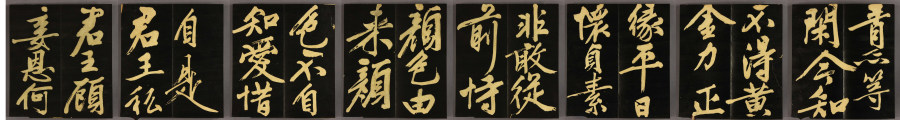 等
閑今知
不得黄
金力正
緣平日
懷貞素
非敢從
前恃
顏色由
来顏
色不自
知愛惜
自是
君王私
君王顧
妾恩何